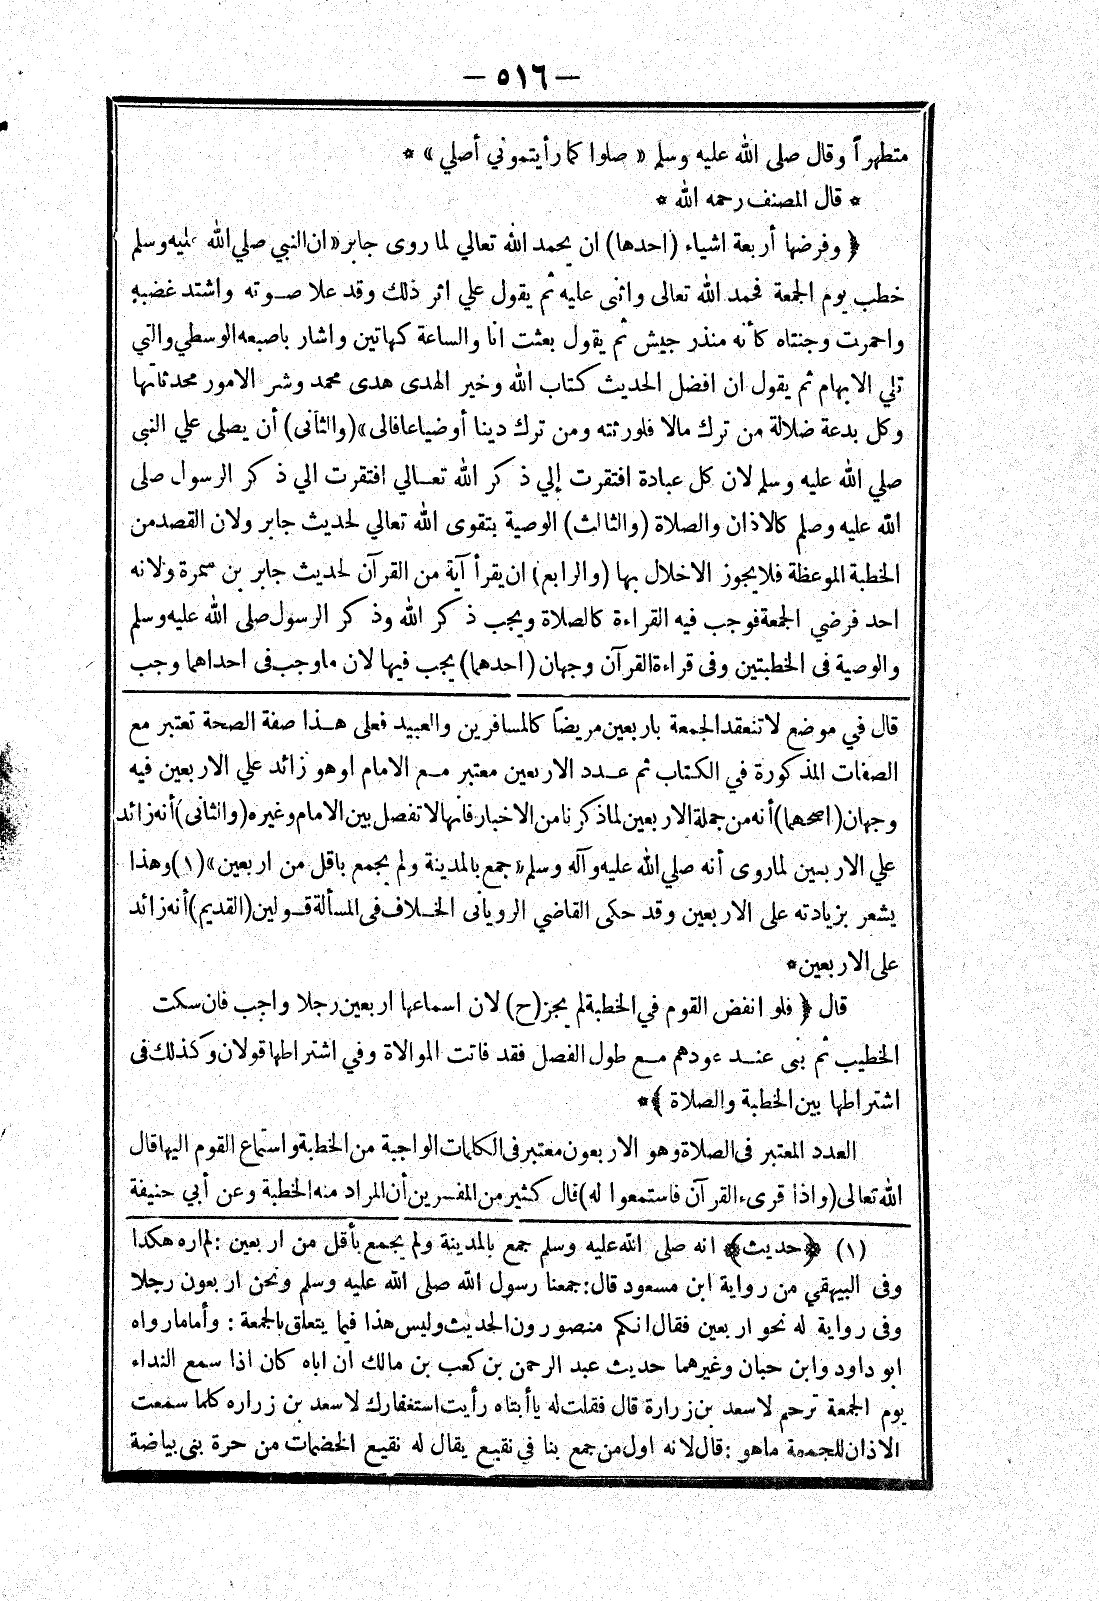 — ٥١٦ —
متطهراً وقال صلى الله عليه وسلم « صلوا كما رأيتموني أصلي » *
* قال المصنف رحمه الله *
﴿ وفرضها أربعة اشياء (احدها) ان يحمد الله تعالي لما روى جابر « ان النبي صلي الله عليه وسلم
خطب يوم الجمعة فحمد الله تعالى واثنى عليه ثم يقول علي اثر ذلك وقد علا صوته واشتد غضبه
واحمرت وجنتاه كأنه منذر جيش ثم يقول بعثت انا والساعة كهاتين واشار باصبعه الوسطي والتي
تلي الابهام ثم يقول ان افضل الحديث كتاب الله وخير الهدى هدى محمد وشر الامور محدثاتها
وكل بدعة ضلالة من ترك مالا فلورثته ومن ترك دينا أوضياعا فالى » (والثانى) أن يصلى علي النبي
صلي الله عليه وسلم لان كل عبادة افتقرت إلي ذكر الله تعالي افتقرت الي ذكر الرسول صلى
الله عليه وسلم كالاذان والصلاة (والثالث) الوصية بتقوى الله تعالي لحديث جابر ولان القصد من
الخطبة الموعظة فلا يجوز الاخلال بها (والرابع) ان يقرأ آية من القرآن لحديث جابر بن سمرة ولانه
احد فرضي الجمعة فوجب فيه القراءة كالصلاة ويجب ذكر الله وذكر الرسول صلى الله عليه وسلم
والوصية فى الخطبتين وفى قراءة القرآن وجهان (احدهما) يجب فيها لان ماوجب فى احداهما وجب
قال في موضع لا تنعقد الجمعة باربعين مريضاً كالمسافرين والعبيد فعلى هذا صفة الصحة تعتبر مع
الصفات المذكورة في الكتاب ثم عدد الاربعين معتبر مع الامام اوهو زائد علي الاربعين فيه
وجهان (اصحهما) أنه من جملة الاربعين لما ذكرنا من الاخبار فانها لا تفصل بين الامام وغيره (والثانى) أنه زائد
علي الاربعين لماروى أنه صلي الله عليه وآله وسلم « جمع بالمدينة ولم يجمع باقل من اربعين » (١) وهذا
يشعر بزيادته على الاربعين وقد حكى القاضي الرويانى الخلاف فى المسألة قولين (القديم) أنه زائد
على الاربعين *
قال ﴿ فلو انفض القوم في الخطبة لم يجز (ح) لان اسماعها اربعين رجلا واجب فان سكت
الخطيب ثم بنى عند عودهم مع طول الفصل فقد فاتت الموالاة وفي اشتراطها قولان وكذلك فى
اشتراطها بين الخطبة والصلاة ﴾ *
العدد المعتبر فى الصلاة وهو الاربعون معتبر فى الكلمات الواجبة من الخطبة واستماع القوم اليها قال
الله تعالى (واذا قرىء القرآن فاستمعوا له) قال كثير من المفسرين أن المراد منه الخطبة وعن أبي حنيفة
(١) ﴿حديث﴾ انه صلى الله عليه وسلم جمع بالمدينة ولم يجمع بأقل من اربعين : لم اره هكذا
وفى البيهقي من رواية ابن مسعود قال: جمعنا رسول الله صلى الله عليه وسلم ونحن اربعون رجلا
وفى رواية له نحو اربعين فقال انكم منصورون الحديث وليس هذا فيما يتعلق بالجمعة : وأما مارواه
ابو داود وابن حبان وغيرهما حديث عبد الرحمن بن كعب بن مالك ان اباه كان اذا سمع النداء
يوم الجمعة ترحم لاسعد بن زرارة قال فقلت له يا أبتاه رأيت استغفارك لاسعد بن زراره كلما سمعت
الاذان للجمعة ماهو : قال لانه اول من جمع بنا في نقيع يقال له نقيع الخضمات من حرة بنى بياضة